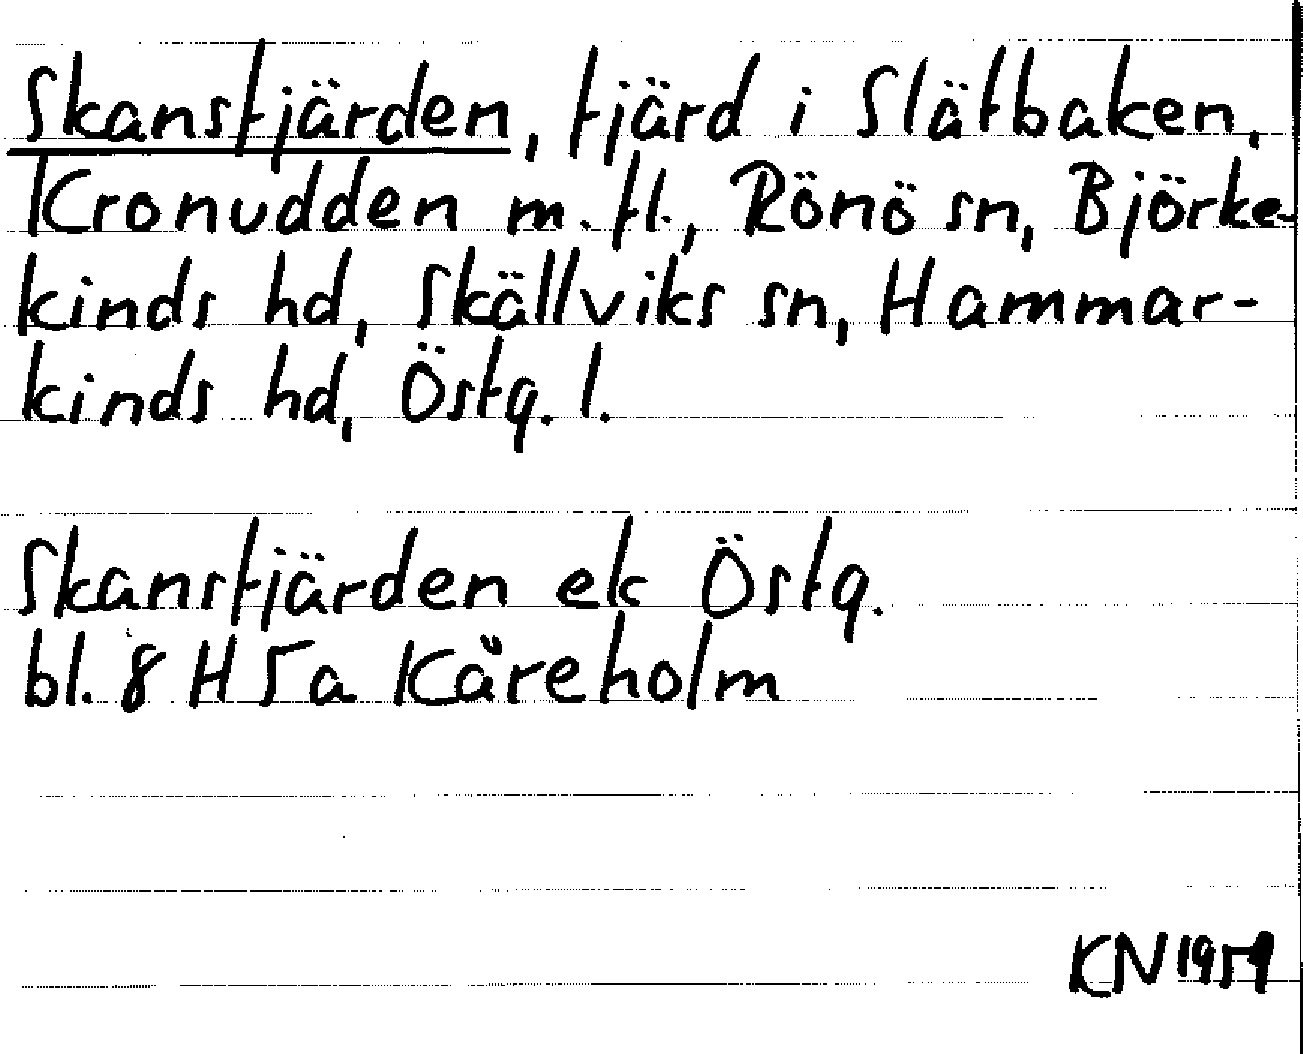 Skansfjärden, fjärd i Slätbaken,
Kronudden m. fl., Rönö sn, Björke-
kinds hd, Skällviks sn, Hammar-
kinds hd, Östg. l.
Skansfjärden ek Östg.
bl. 8 H 5 a Käreholm
KN 1959